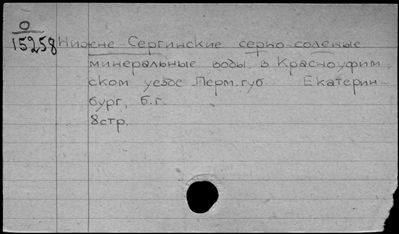 О
15258 Нижне Сергинские серно-соленые
минеральные воды в Красноуфим
ском уезде Перм. губ Екатерин-
бург, б.г.
8стр.